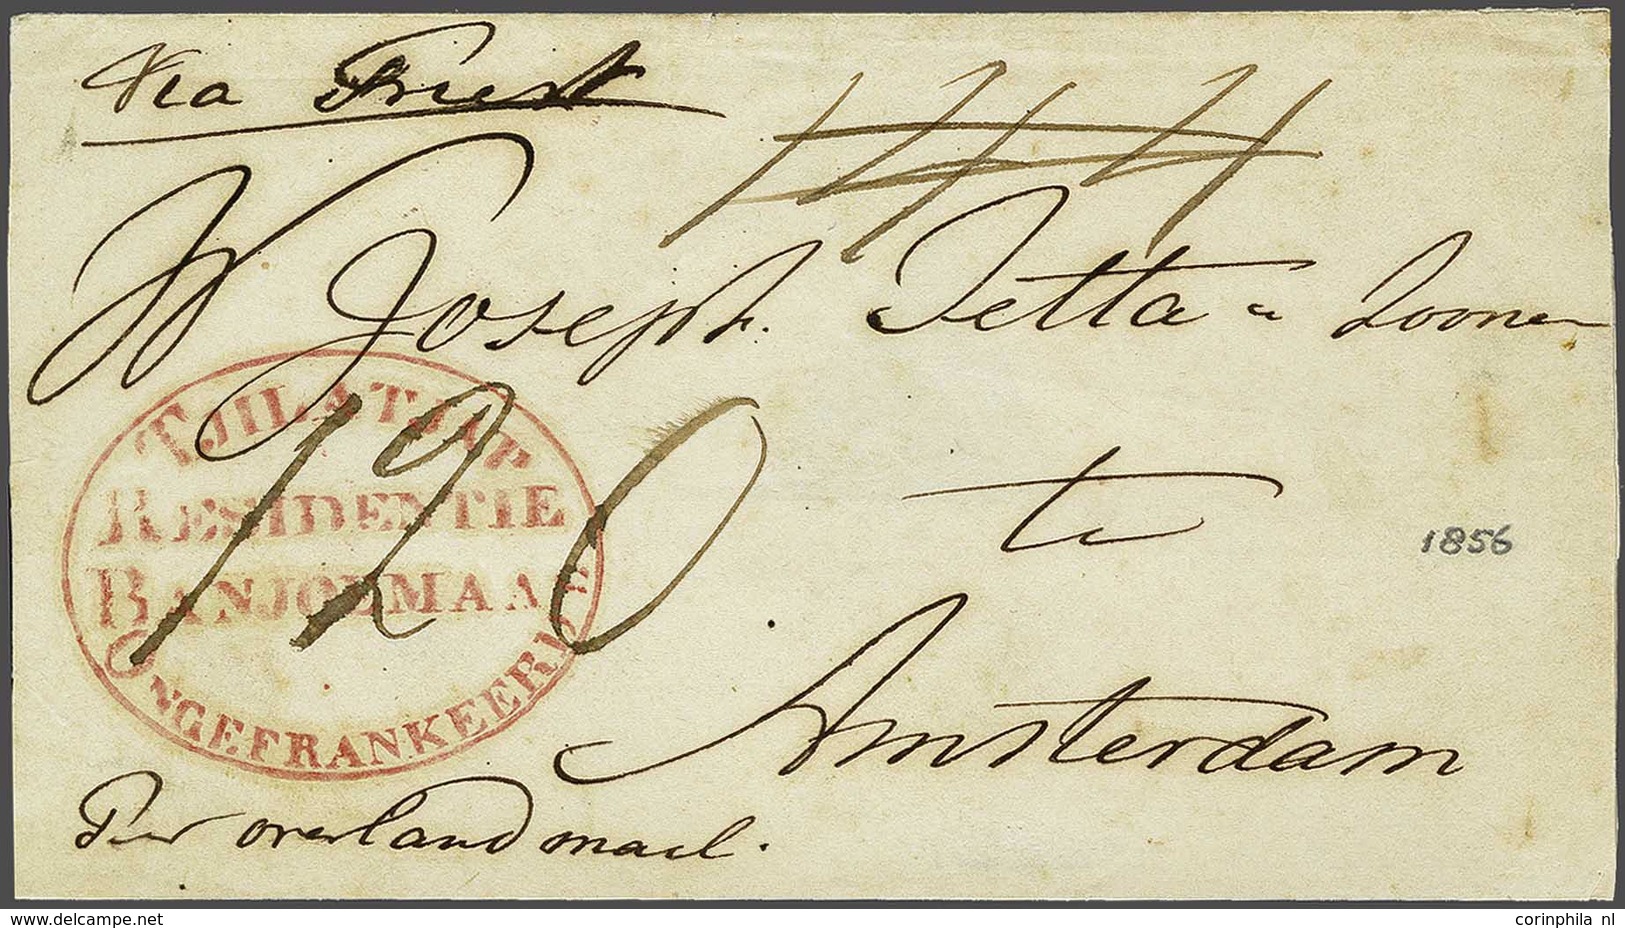 Via Triest
144
W Joseph Tetta & Zoonen
TJILATJAP
RESIDENTIE
BANJOEMAAS
ONGEFRANKEERD
120
te
1856
Amsterdam
Per overland mail.
www.delcampe.net
corinphila nl